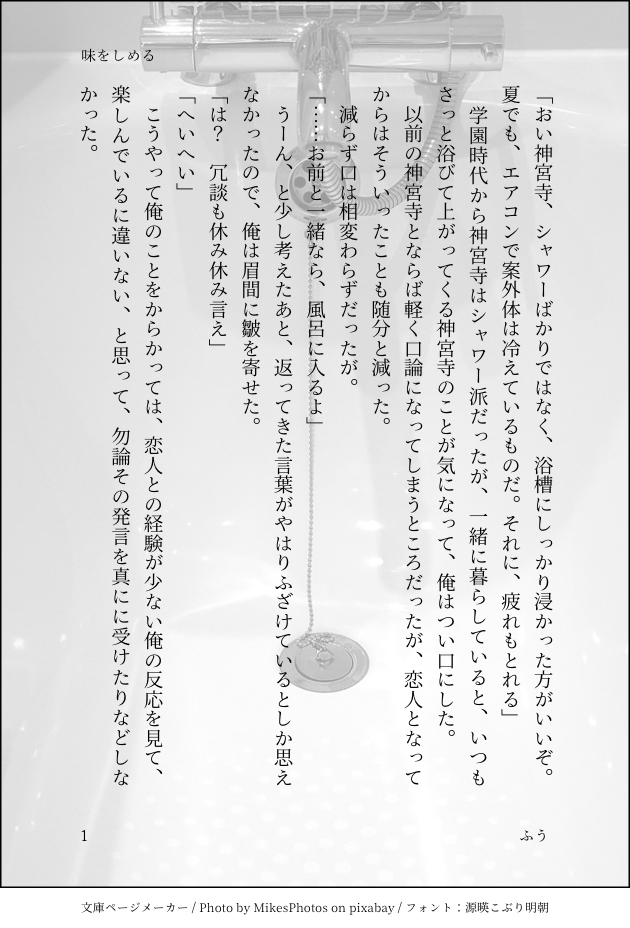 味をしめる
「おい神宮寺、シャワーばかりではなく、浴槽にしっかり浸かった方がいいぞ。
夏でも、エアコンで案外体は冷えているものだ。それに、疲れもとれる」
　学園時代から神宮寺はシャワー派だったが、一緒に暮らしていると、いつも
さっと浴びて上がってくる神宮寺のことが気になって、俺はつい口にした。
　以前の神宮寺とならば軽く口論になってしまうところだったが、恋人となって
からはそういったことも随分と減った。
　減らず口は相変わらずだったが。
「……お前と一緒なら、風呂に入るよ」
　うーん、と少し考えたあと、返ってきた言葉がやはりふざけているとしか思え
なかったので、俺は眉間に皺を寄せた。
「は？　冗談も休み休み言え」
「へいへい」
　こうやって俺のことをからかっては、恋人との経験が少ない俺の反応を見て、
楽しんでいるに違いない、と思って、勿論その発言を真にに受けたりなどしな
かった。
ふう
1
文庫ページメーカー / Photo by MikesPhotos on pixabay / フォント：源暎こぶり明朝